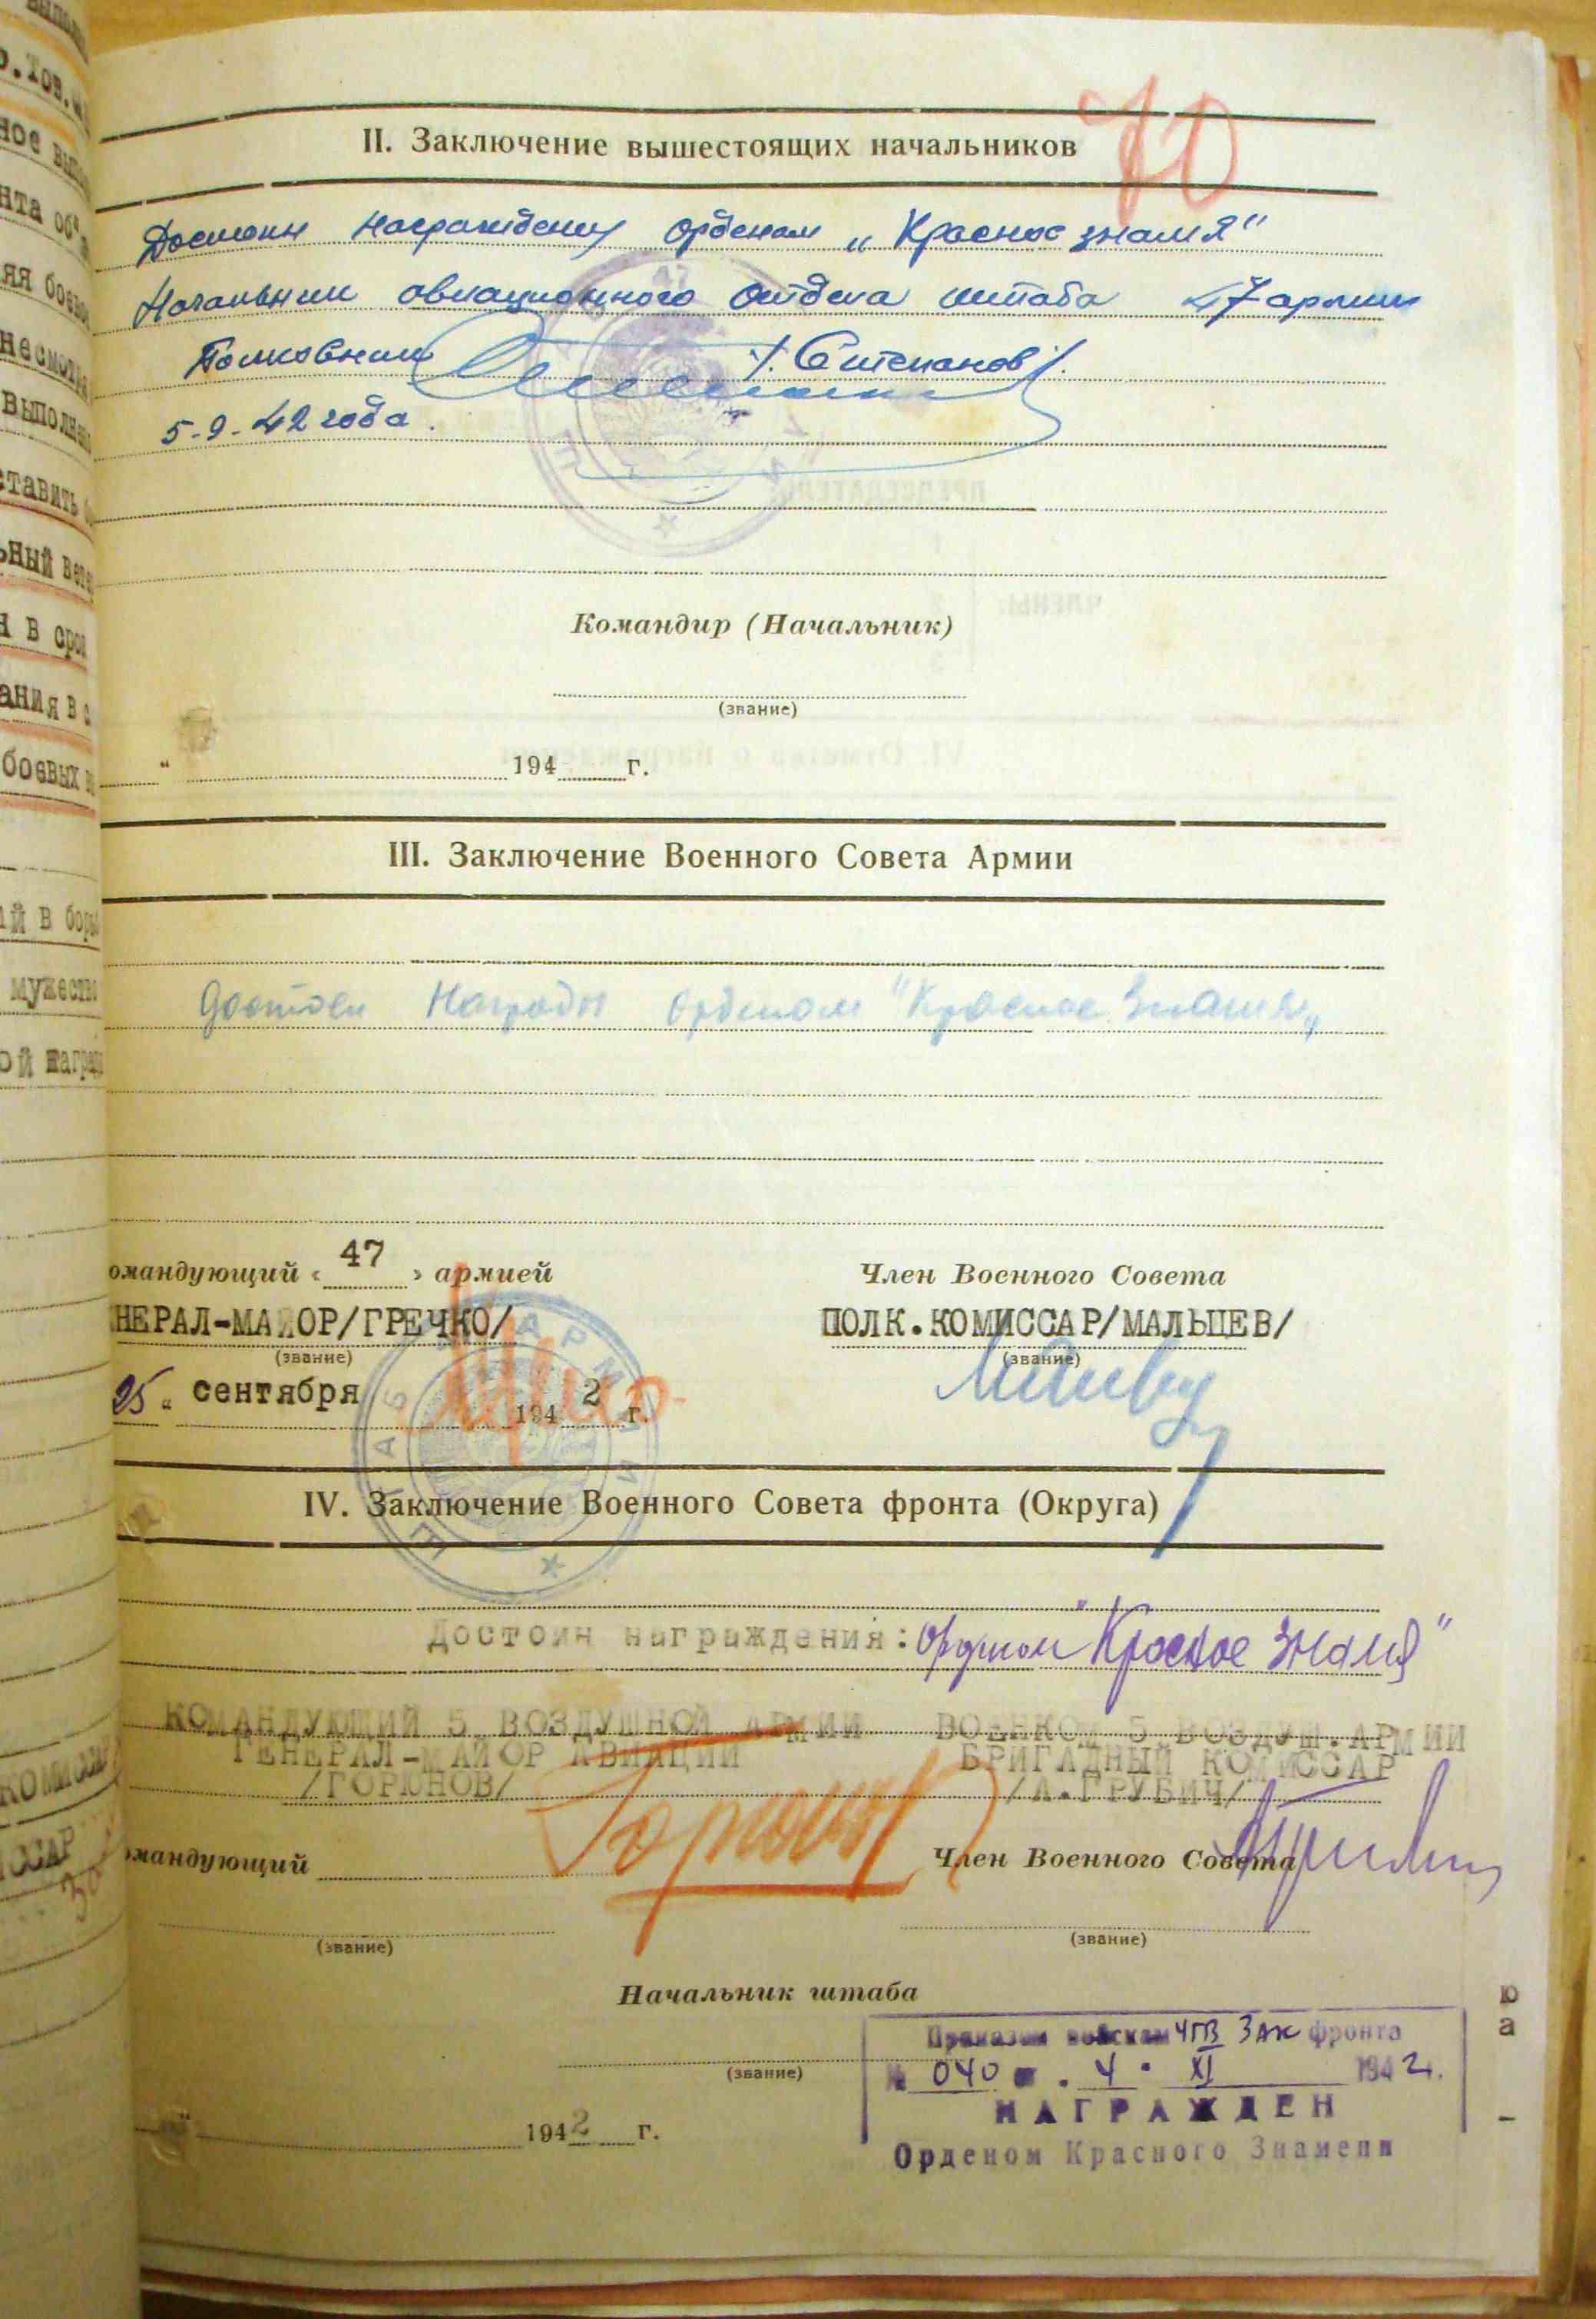 70
II. Заключение вышестоящих начальников
Достоин награждения орденом „Красное знамя"
Начальник авиационного отдела штаба 47 армии
Полковник /Степанов/.
5-9-42 года.
Командир (Начальник)
(звание)
" 194 г.
III. Заключение Военного Совета Армии
Достоин Награды орденом "Красное Знамя„
омандующий « 47 » армией Член Военного Совета
НЕРАЛ-МАЙОР/ГРЕЧКО/ ПОЛК.КОМИССАР/МАЛЬЦЕВ/
(звание) (звание)
25 " сентября 194 2 г.
IV. Заключение Военного Совета фронта (Округа)
Достоин награждения: орденом "Красное Знамя"
КОМАНДУЮЩИЙ 5 ВОЗДУШНОЙ АРМИИ ВОЕНКОМ 5 ВОЗДУШ.АРМИИ
ГЕНЕРАЛ-МАЙОР АВИАЦИИ БРИГАДНЫЙ КОМИССАР
/ГОРЮНОВ/ /А.ГРУБИЧ/
омандующий Член Военного Совета
(звание) (звание)
Начальник штаба
(звание)
" 1942 г.
Приказом войскам ЧГВ Зак фронта
№ 040 н. 4. XI 1942.
НАГРАЖДЕН
Орденом Красного Знамени